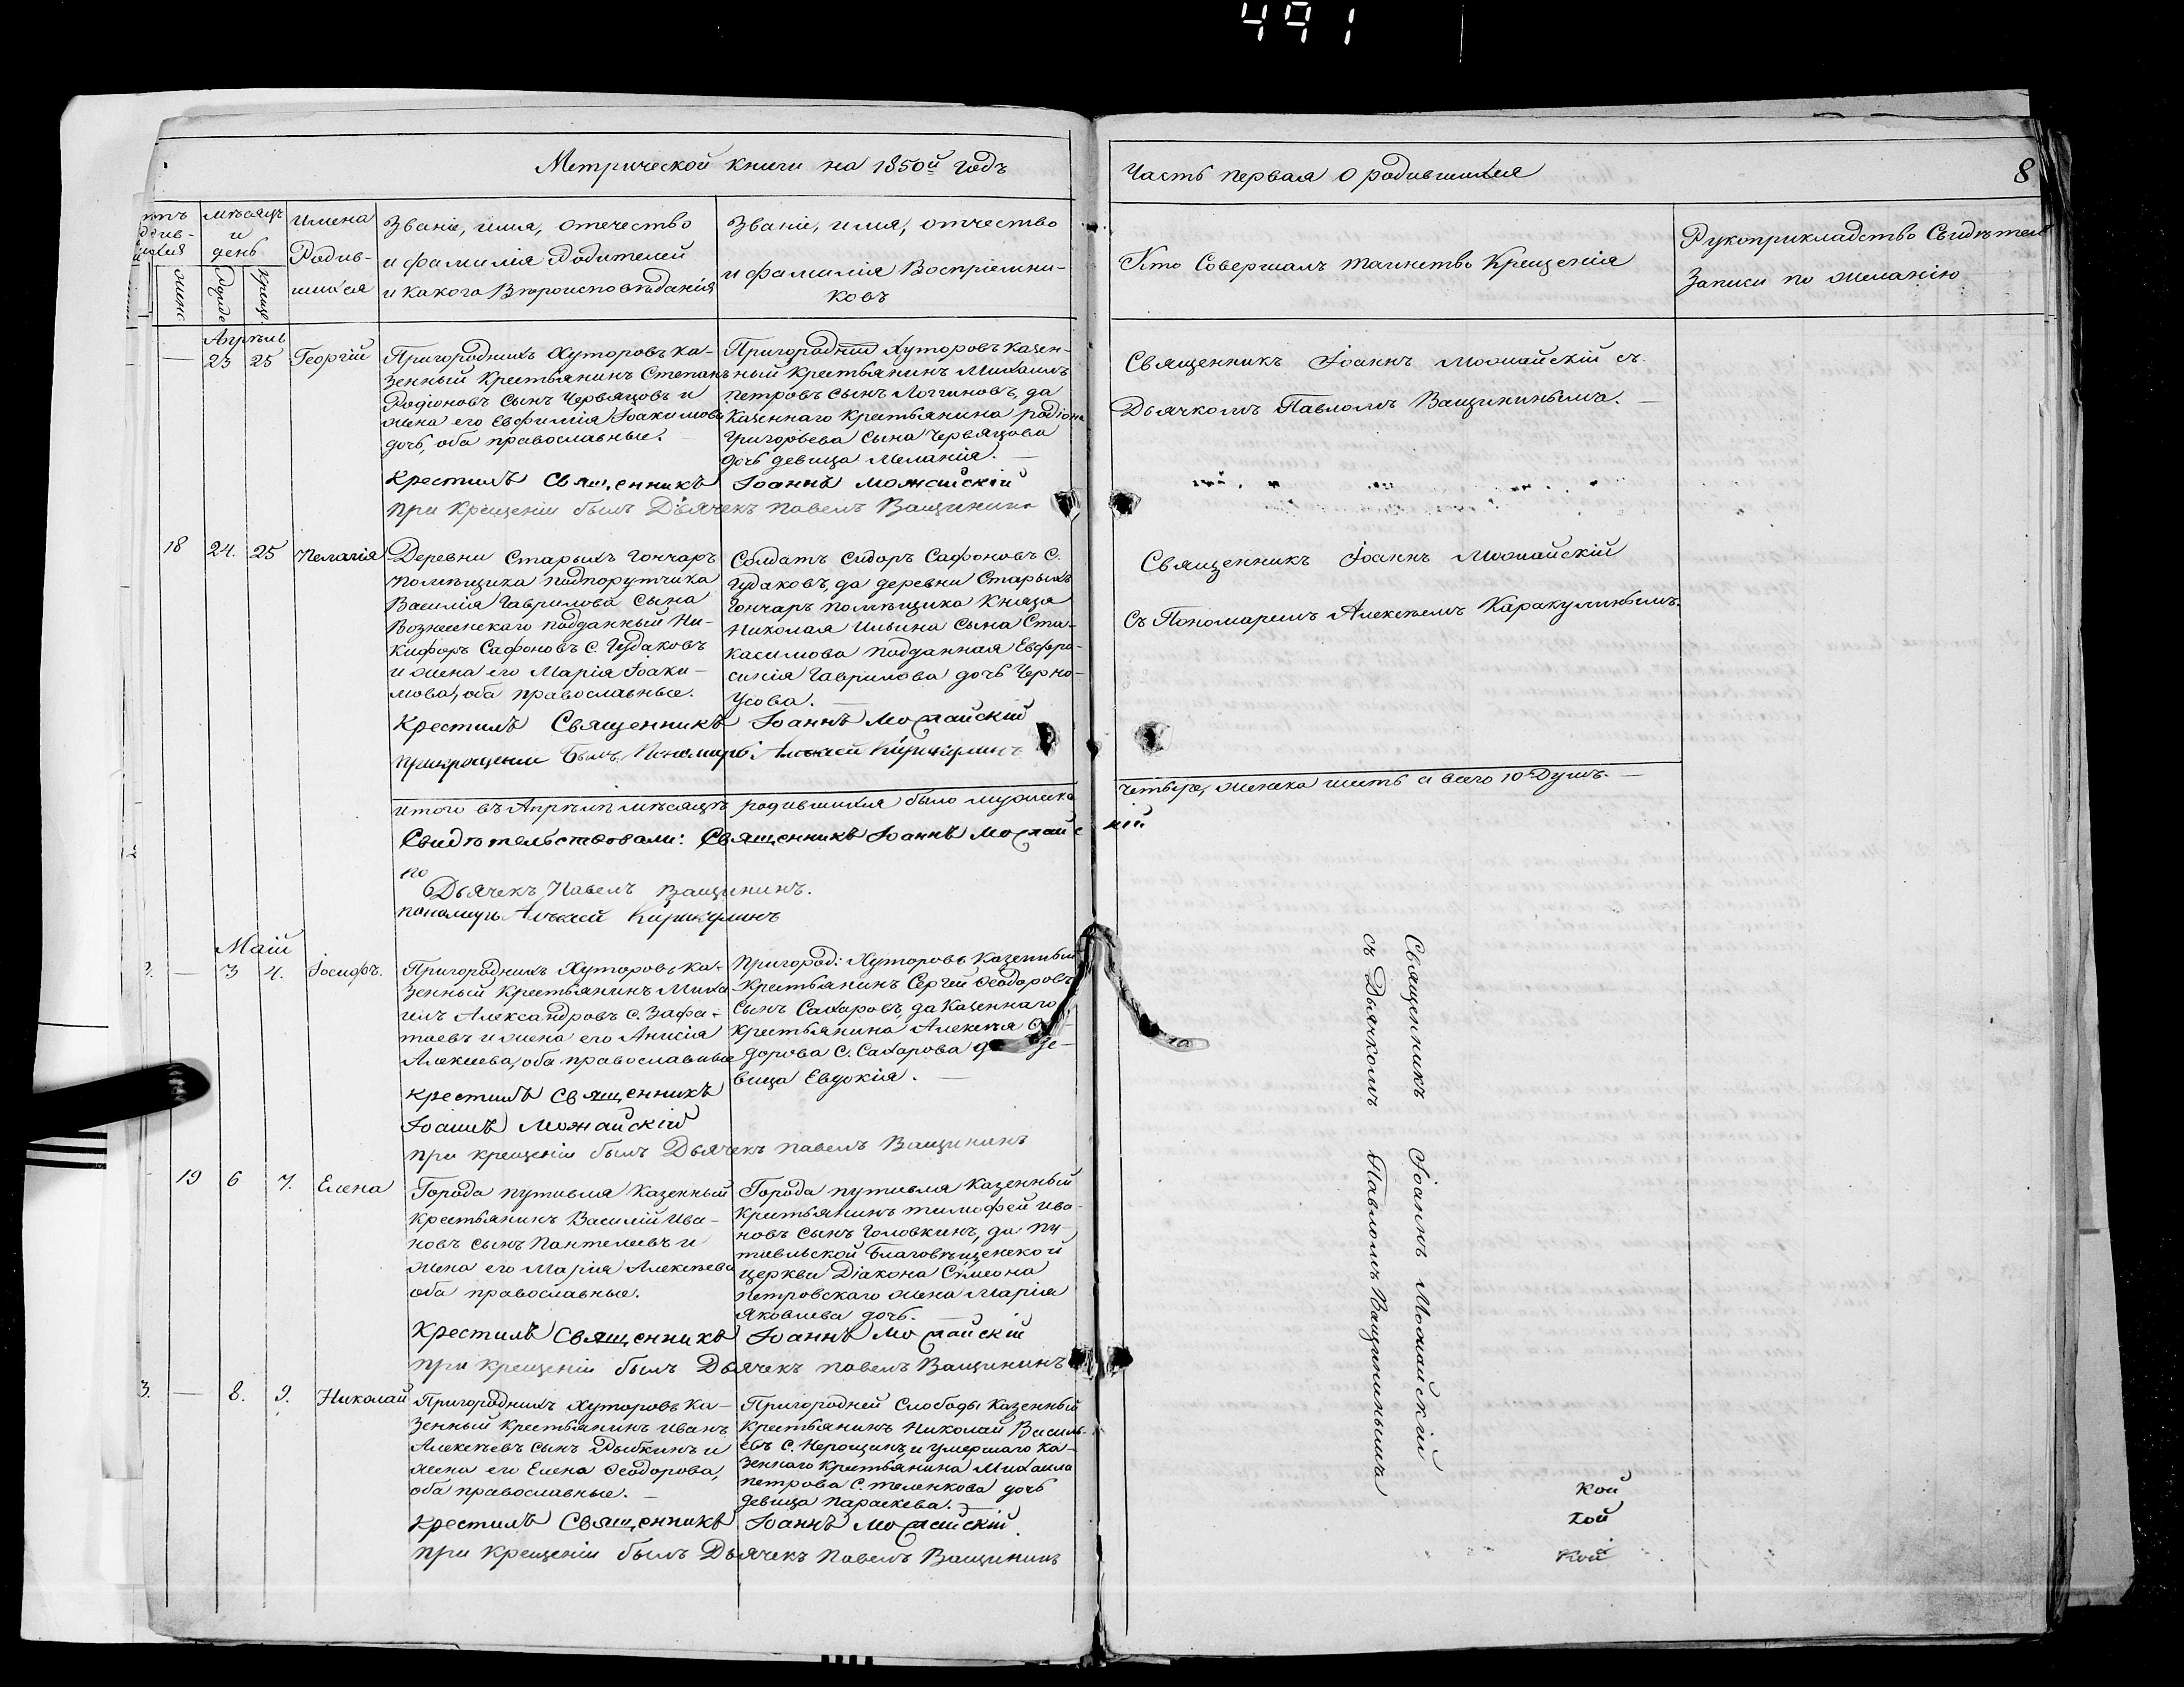 491
Метрической книги на 1850й годъ
Часть первая О родившихся
8
мѣсяцъ и день
Имена Родив-
шихся
Званіе, имя, отечество
и фамилія Родителей
и какого Вѣроисповѣданія
Званіе, имя, отчество
и фамилія Воспріемни-
ковъ
Кто Совершалъ таинство Крещенія
Рукоприкладство Свидѣтел
Записи по желанію
женс.
Рожде
Креще.
Апрѣль
— 23 25 Георгій
Пригороднихъ Хуторовъ ка-
зенный Крестьянинъ Степанъ
Родіоновъ Сынъ Червяцовъ и
жена его Евфимія Іоакимова
дочь, оба православные.
Пригородній Хуторовъ казен-
ный Крестьянинъ Михаилъ
Петровъ Сынъ Логгиновъ, да
казеннаго крестьянина родіона
Григорьева Сына Червяцова
дочь девица Меланія. —
Крестилъ Священникъ Іоаннъ Можайскій
при Крещеніи былъ Дьячекъ Павелъ Ващининъ
Священникъ Іоаннъ Можайскій съ
Дьячкомъ Павломъ Ващининымъ. —
18 24. 25 Пелагія
Деревни Старыхъ Гончаръ
Помѣщика Подпорутчика
Василія Гаврилова Сына
Вознесенскаго подданный Ни-
кифоръ Сафоновъ С. Гудаковъ
и жена его Марія Іоаки-
мова, оба православные.
Солдатъ Сидоръ Сафоновъ С.
Гудаковъ, да деревни Старыхъ
Гончаръ помѣщика Князя
Николая Ильина Сына Ста-
касимова подданная Евфро-
синія Гаврилова дочь Черно-
усова. —
Крестилъ Священникъ Іоаннъ Можайскій
при крещении былъ Пономарь Алексей Каракулинъ
Священникъ Іоаннъ Можайскій
Съ Пономаремъ Алексѣемъ Каракулинымъ.
итого въ Апрѣлѣ мѣсяцѣ родившихся было мужска
четыре, женска шесть а всего 10ть Душъ. —
Свидѣтельствовали: Священникъ Іоаннъ Можайс кій
Дьячекъ Павелъ Ващининъ.
пономарь Алексей Каракулинъ
Май
— 3 4. Іосифъ.
Пригороднихъ Хуторовъ ка-
зенный Крестьянинъ Миха-
илъ Александровъ С. Зафа-
таевъ и жена его Анисія
Алексѣева, оба православные
Пригород: Хуторовъ Казенный
Крестьянинъ Сергѣй Ѳеодоровъ
Сынъ Сахаровъ, да Казеннаго
крестьянина Алексѣя
дорова С. Сахарова
вица Евдокія. —
Крестилъ Священникъ
Іоаннъ Можайскій
при крещеніи былъ Дьячекъ павелъ Ващининъ
19 6 7. Елена
Города путивля Казенный
Крестьянинъ Василій Ива-
новъ сынъ Пантелеевъ и
жена его Марія Алексѣева
оба православные.
Города путивля Казенный
Крестьянинъ тимофей Ива-
новъ Сынъ Головкинъ, да Пу-
тивльской Благовѣщенской
церкви Діакона Сѵмеона
петровскаго жена Марія
Яковлева дочь. —
Крестилъ Священникъ Іоаннъ Можайскій
при крещеніи былъ Дьячекъ павелъ Ващининъ
3. — 8. 9. Николай
Пригороднихъ Хуторовъ Ка-
зенный Крестьянинъ Иванъ
Алексѣевъ Сынъ Рыбкинъ и
жена его Елена Ѳеодорова,
оба православные. —
Пригородней Слободы Казенный
Крестьянинъ Николай Василь-
евъ С. Нерощинъ, и умершаго Ка-
зеннаго крестьянина Михаила
петрова С. теленкова дочь
девица параскева. —
Крестилъ Священникъ Іоаннъ Можайскій
при крещеніи былъ Дьячекъ Павелъ Ващининъ
Священникъ Іоаннъ Можайскій
съ Дьячкомъ Павломъ Ващининымъ
кой
кой
кой